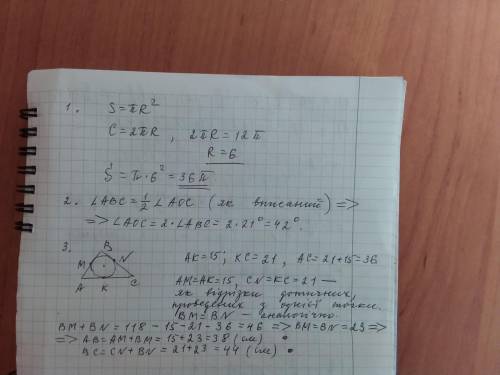 1. S = πR²
C = 2πR , 2πR = 12π
R = 6
S = π · 6² = 36π
2. ∠ABC = 1/2 ∠AOC (як вписаний) =>
=> ∠AOC = 2 · ∠ABC = 2 · 21° = 42°.
3.
B
M N
A K C
AK = 15 ; KC = 21 , AC = 21 + 15 = 36
AM = AK = 15, CN = KC = 21 —
як відрізки дотичних,
проведених з однієї точки.
BM = BN — аналогічно.
BM + BN = 118 - 15 - 21 - 36 = 46 => BM = BN = 23 =>
=> AB = AM + BM = 15 + 23 = 38 (см)
BC = CN + BN = 21 + 23 = 44 (см)